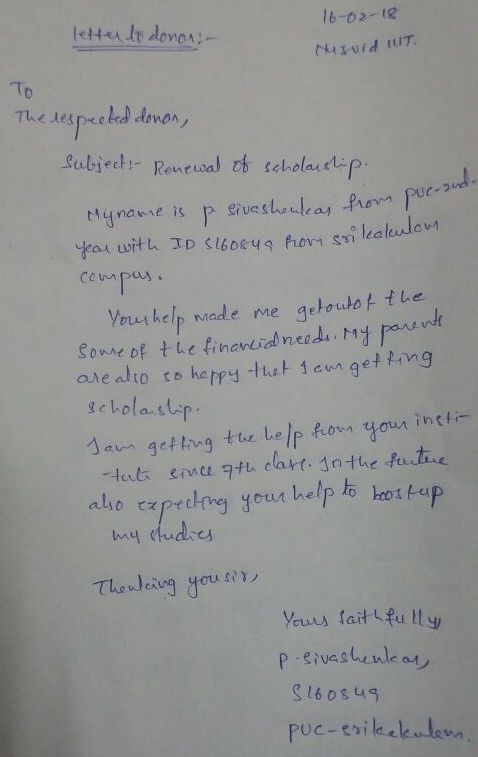 16-02-18
letter to donor:-
Nuzvid IIIT.
To
The respected donor,
Subject:- Renewal of scholarship.
My name is p sivashankar from puc-2nd-
year with ID S160849 from srikakulam
campus.
Your help made me get out of the
some of the financial needs. My parents
are also so happy that I am getting
scholarship.
I am getting the help from your insti-
-tute since 7th class. In the further
also expecting your help to boostup
my studies
Thanking you sir,
Yours faithfully
p-sivashankar,
S160849
PUC-srikakulam.